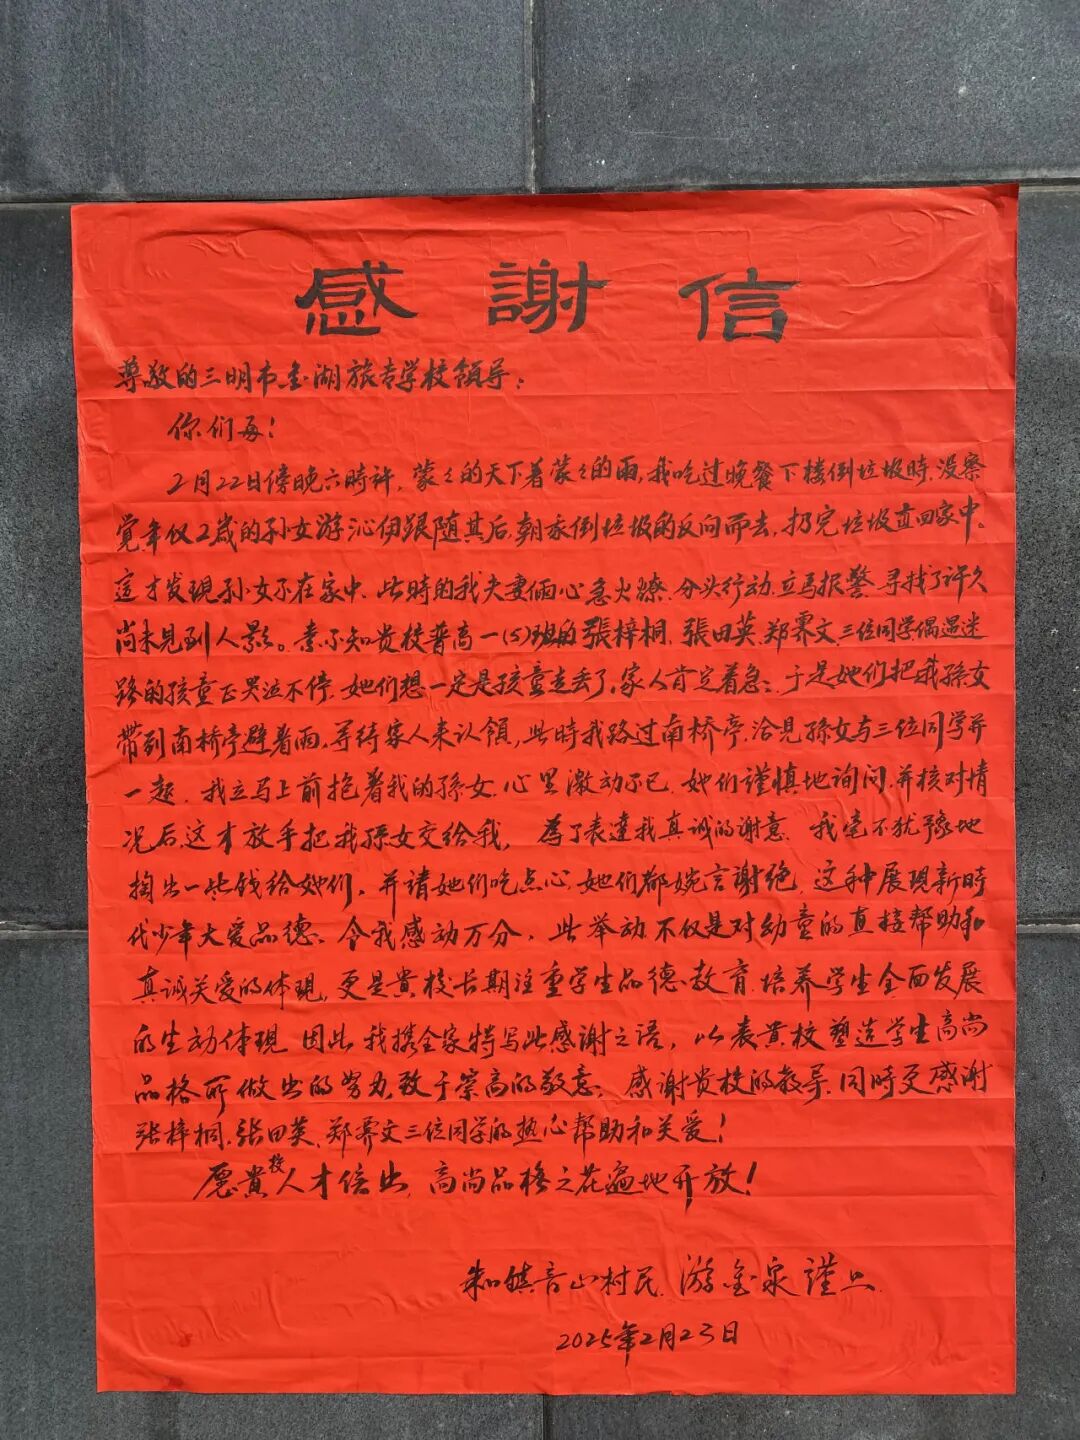 感謝信
尊敬的三明市金湖旅专学校領导:
你们好!
2月22日傍晚六時許,蒙々的天下着蒙々的雨,我吃过晚餐下楼倒垃圾時,没察
覚年仅2歳的孙女游沁伊跟随其后,朝我倒垃圾的反向而去,扔完垃圾直回家中。
這才发現孙女不在家中,此時的我夫妻俩心急火燎,分头行动,立马报警,寻找了许久
尚未見到人影。素不知贵校普高一(5)班的張梓桐,張田英,郑霁文三位同学偶遇迷
路的孩童正哭泣不停,她们想一定是孩童走丢了,家人肯定着急;于是她们把我孫女
带到南桥亭避着雨,等待家人来认領,此時我路过南桥亭,洽見孫女与三位同学并
一起,我立马上前抱着我的孫女,心里激动不已,她们謹慎地詢问,并核对情
况后,这才放手把我孫女交给我,為了表達我真诚的谢意,我毫不犹豫地
掏出一些钱给她们,并请她们吃点心,她们都婉言谢绝,这种展現新時
代少年大爱品德,令我感动万分,此举动不仅是对幼童的直接帮助和
真诚关爱的体現,更是貴校长期注重学生品德教育,培养学生全面发展
的生动体現,因此我携全家特写此感谢之语,以表贵校塑造学生高尚
品格所做出的努力,致于崇高的敬意,感谢贵校的教导,同時更感谢
张梓桐,张田英,郑霁文三位同学的热心帮助和关爱!
愿貴校人才倍出,高尚品格之花遍地开放!
朱口镇音山村民,游金泉謹上
2025年2月23日